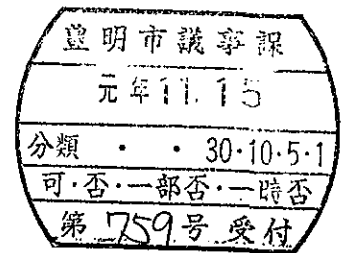 豊明市議事課
元年11.15
分類 ・ ・ 30・10・5・1
可・否・一部否・一時否
第759号受付